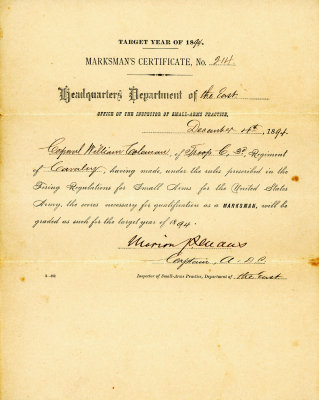 TARGET YEAR OF 1894.
MARKSMAN'S CERTIFICATE, No. 214
Headquarters Department of the East.
OFFICE OF THE INSPECTOR OF SMALL-ARMS PRACTICE,
December 4th, 1894.
William Coleman, of Troop C, 3d Regiment
of Cavalry, having made, under the rules prescribed in the
Firing Regulations for Small Arms for the United States
Army, the scores necessary for qualification as a MARKSMAN, will be
graded as such for the target year of 1894.
Marion P. Maus
Captain, A. D. C.
Inspector of Small-Arms Practice, Department of the East